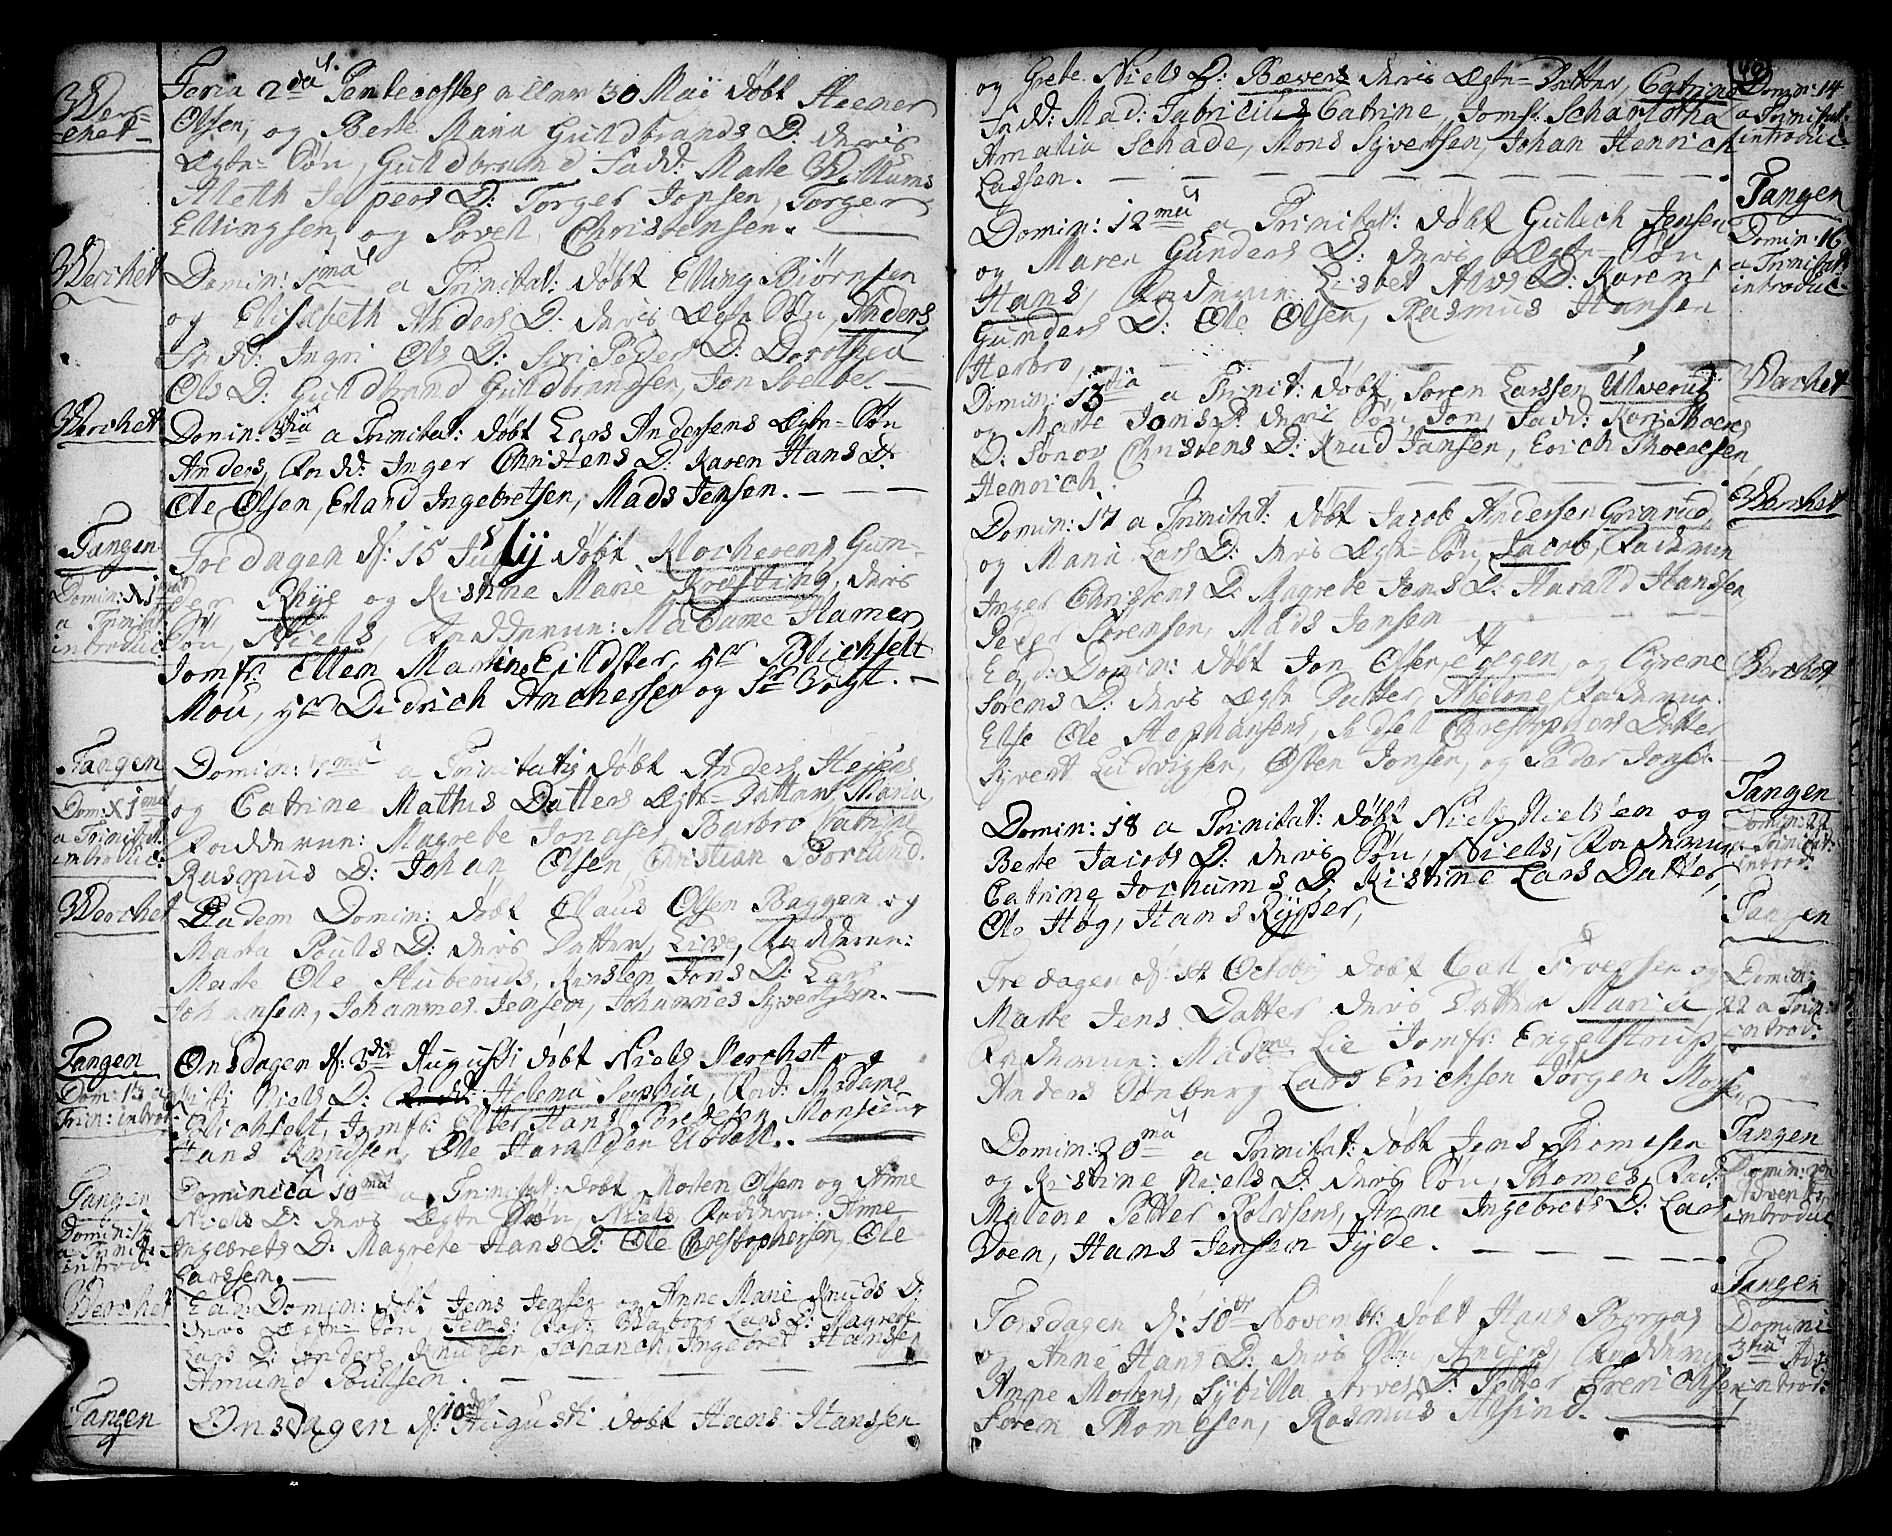 Werchet
Feria 2da Pentecostes 30 Maij døbt Steener
Olsen, og Berte Maria Guldbrands D: deres
Ægte Søn, Guldbrand Fadd: Marte Willums
Aleth Jespers D: Torger Jonsen, Torger
Ellingsen, og Povel Christensen.
Werchet
Domin: 1ma a Trinitat: døbt Elling Biørnsen
og Elisabeth Anders D: deres Ægte Søn, Anders
Fadd: Ingri Ols D: Siri Peders D: Dorothea
Ols D: Guldbrand Guldbrandsen, Jon
Werchet
Domin: 3tia a Trinitat: døbt Lars Andersens Ægte Søn
Anders, Fadd: Inger Christens D: Karen Hans D:
Ole Olsen, Erland Ingebretsen, Mads Jensen.
Tangen
Domin: XIma
a Trinitat
introduc:
Fredagen d: 15 July døbt Klocheren Gun-
der Rhye og Kistine Marie Kræfting, deres
Søn, Niels, Fadderne: Madame Hamer
Jomfr: Ellen Martine Eildster, Hr Blichfelt
Mou, Hr Didrich Anchersen og Sr Vogt.
Tangen
Dom: XIma
a Trinitat:
introduc:
Domin: 7ma a Trinitatis døbt Anders Hejens
og Catrine Mathis Datters Ægte Datter, Maria
Fadderne: Magrete Jonases, Barbro Catrine
Rasmus D: Johan Olsen, Christian Borlund.
Werchet
Eadem Domin: døbt Claus Olsen Baggen og
Marta Pouls D: deres Datter, Live, Fadderne:
Marte Ole Stuberuds, Kirsten Jons D: Lars
Johansen, Johannes Jensen, Johannes Syvertsen.
Tangen
Dom: 13 a
Trin: introd:
Onsdagen d: 3die Augusti døbt Niels Werchett og
Kisti Niels D: Helena Sophia, Fad: Madame
Blichfelt, Jomfr: Ester Hans Monsieur
Hans Knudsen, Ole Haraldsen Ustell.
Tangen
Domin: 14
a Trinit:
introd:
Dominica 10ma a Trinitat: døbt Morten Olsen og Anne
Niels D: deres Ægte Søn, Niels Fadderne: Anne
Ingebrets D: Magrete Hans D: Ole Christophersen, Ole
Larssen.
Werchet
Ead: Domin: døbt Jens Jensen og Anne Marie Knuds D:
deres Ægte Søn Jens: Fad: Waborg Lars D: Magrete
Lars D: Anders Knudsen, Johan Ingebret Hansen
Amund Poulsen.
Tangen
Onsdagen d: 10de Augusti døbt Hans Hanssen
og Grete Niels D: Bævers deres Ægte Datter, Catrine
Fadd: Mad: Fabricius Catrine, Jomf: Scharlotha
Amalia Schade, Mons Syvertsen, Johan Henrich
Lassen.
Domin: 14
a Trinitat:
introduc:
Tangen
Domin: 16
a Trinitat:
introduc:
Domin: 12ma a Trinitat: døbt Gulich Jensen
og Maren Gunders D: deres Ægte Søn
Hans, Fadderne: Lisbet Alvs D: Karen
Gunders D: Ole Olsen, Rasmus Hansen
Herbro
Werchet
Domin: 13tia a Trinit: døbt Soren Larssen Ulverud
og Marte Jons D: deres Søn, Jon, Fadd: Kari Thores
D: Jonov Christens D: Knud Jansen, Erich Thoresen,
Henrich.
Werchet
Domin: 17 a Trinitat: døbt Jacob Andersen Grimsrud
og Maria Lars D: deres Ægte Søn, Jacob, Fadderne
Inger Christens D: Magrete Jens D: Harald Hansen,
Peder Sørensen, Mads Jensen
Werchet
Ead: Domin: døbt Jon Olsen, og Cyrene
Sørens D: deres Ægte Datter, Malene Fadderne:
Else Ole Stephansens, Sidsel Christophers Datter
Syvert Ludvigsen, Østen Jonsen, og Peder Jonsen.
Tangen
Domin: 22
a Trinitat:
introd:
Domin: 18 a Trinitat: døbt Niels Nielsen og
Berte Jacobs D: deres Søn, Niels, Fadderne
Catrine Jochums D. Kistine Lars Datter,
Ole Høg, Hans Rypper,
Tangen
Domin:
22 a Trin:
introd:
Fredagen d: 14 October døbt Call Iversen og
Marte Jens Datter deres Datter Maria
Fadderne: Madme Lie Jomfr: Engelstrup
Anders Tønberg Lars Erichsen Jørgen
Tangen
Domin:
Advent:
introduc
Domin: 20ma a Trinitat: døbt Jens Thomesen
og Kistine Niels D: deres Søn, Thomes, Fad:
Malene Petter Rolofsens, Anne Ingebrets D: Lars
Doem, Hans Jensen Jyde.
Tangen
Domini
3tia Adv:
introd:
Torsdagen d: 10de Novemb: døbt Hans Borgas
og Anne Hans D: deres Søn, Anders, Fadderne
Anne Mortens, Sybilla Arves D: Petter Frerichsen
Søren Thomesen, Rasmus Alsing.